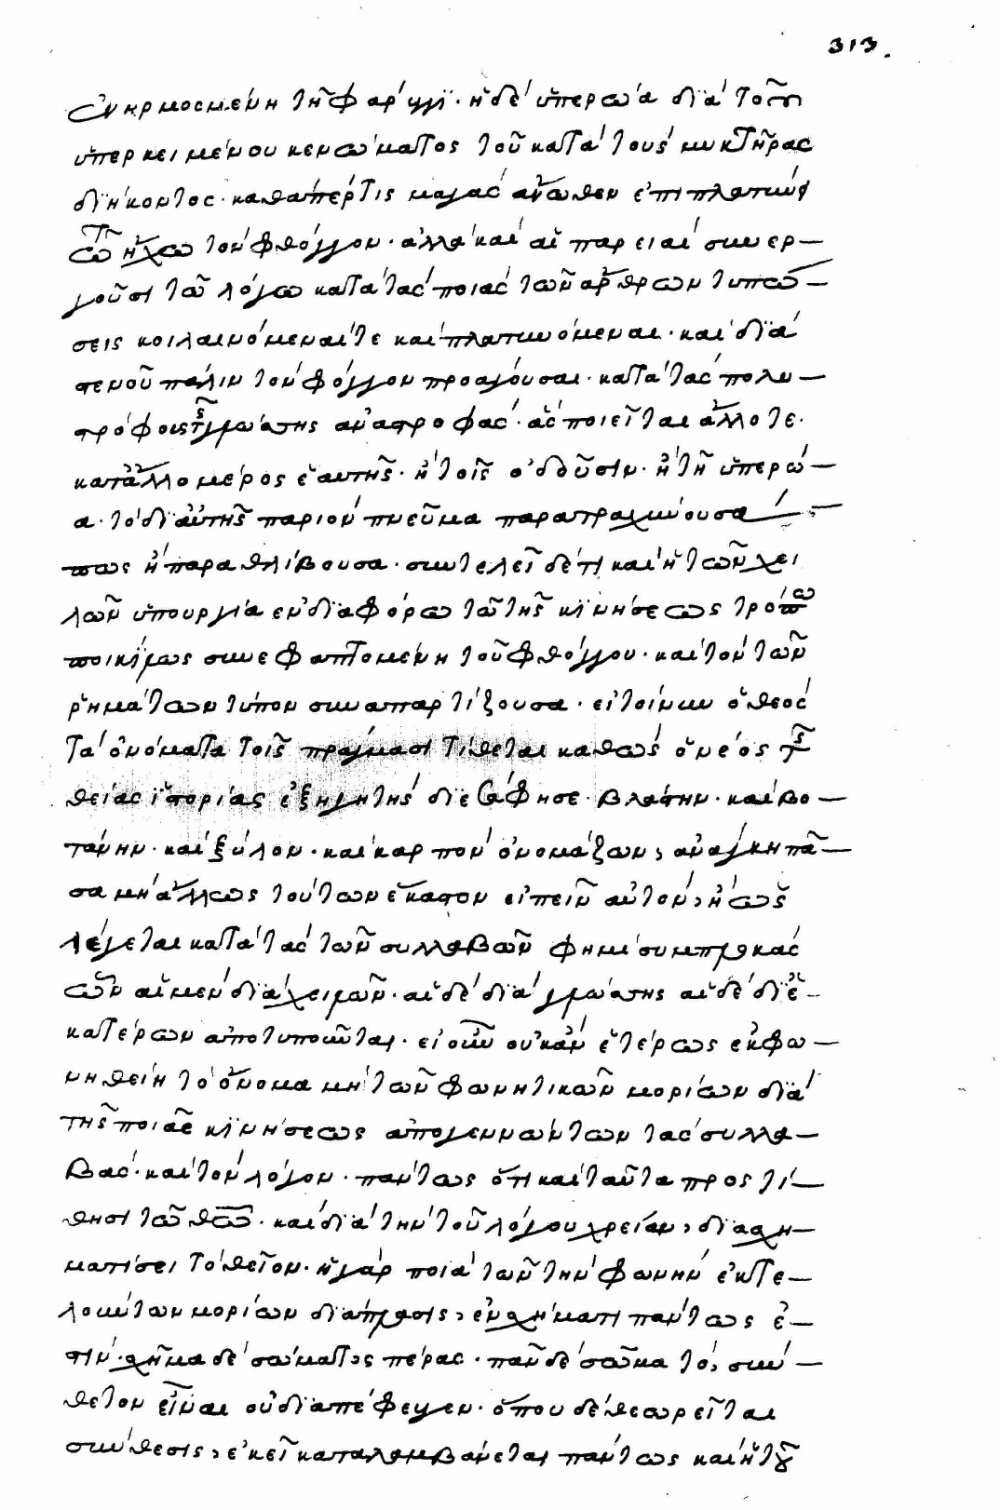 313.
ἐνηρμοσμένη τῆ φάρυγγι· ἡ δὲ ὑπερώα διὰ τοῦ
ὑπερκειμένου κενώματος τοῦ κατὰ τοὺς μυκτῆρας
διήκοντος· καθάπέρ τις μαγὰς ἄνωθεν ἐπιπλατύν
ων τῆ ἠχὼ τὸν φθόγγον· ἀλλὰ καὶ αἱ παρειαὶ συνερ-
γοῦσι τῶ λόγω κατὰ τὰς ποιὰς τῶν ἄρθρων τυπώ-
σεις κοιλαινόμεναί τε καὶ πλατυνόμεναι· καὶ διὰ
στενοῦ πάλιν τὸν φόγγον προάγουσαι· κατὰ τὰς πολυ-
στρόφους τῆς γλώττης ἀναστροφάς· ἃς ποιεῖται ἄλλοτε·
κατἄλλο μέρος ἑαυτῆς· ἢ τοῖς ὀδοῦσιν· ἢ τῆ ὑπερώ-
α· τὸ δι αὐτῆς παριὸν πνεῦμα παρατραχύνουσά
πως ἢ παραθλίβουσα· συντελεῖ δέ τι καὶ ἡ τῶν χει
λῶν ὑπουργία ἐν διαφόρω τῶ τῆς κινήσεως τρόπω
ποικίλως συνεφαπτομένη τοῦ φθόγγου· καὶ τὸν τῶν
ῥημάτων τύπον συναπαρτίζουσα· εἰ τοίνυν ὁ θεὸς
τὰ ὀνόματα τοῖς πράγμασι τίθεται καθὼς ὁ νέος τῆς
θείας ἱστορίας ἐξηγητὴς διεσάφησε· βλάστην· καὶ βο-
τάνην· καὶ ξύλον· καὶ καρπὸν ὀνομάζων, ἀνάγκη πᾶ-
σα μὴ ἄλλως τούτων ἕκαστον εἰπεῖν αὐτὸν, ἢ ὡς
λέγεται κατὰ τὰς τῶν συλλαβῶν φημὶ συμπλοκάς
ὧν αἱ μὲν διὰ χειλῶν· αἱ δὲ διὰ γλώττης αἱ δὲ δι ἑ-
κατέρων ἀποτυποῦνται· εἰ οὖν οὐκ ἂν ἑτέρως ἐκφω-
νηθείη τὸ ὄνομα μὴ τῶν φωνητικῶν μορίων διὰ
τῆς ποιᾶς κινήσεως ἀπογεννώντων τὰς συλλα-
βὰς· καὶ τὸν λόγον· πάντως ὅτι καὶ ταῦτα προστί-
θησι τῶ θω· καὶ διὰ τὴν τοῦ λόγου χρείαν, διασχη-
ματίσει τὸ θεῖον· ἡ γὰρ ποιὰ τῶν τὴν φωνὴν ἐκτε-
λούντων μορίων διάπλασις, ἐν σχήματι πάντως ἐ-
στίν· σχῆμα δὲ σώματος πέρας· πᾶν δὲ σῶμα τὸ, σύν-
θετον εἶναι οὐ διαπέφευγεν· ὅπου δὲ θεωρεῖται
σύνθεσις, ἐκεῖ καταλαμβάνεται πάντως καὶ ἡ τοῦ